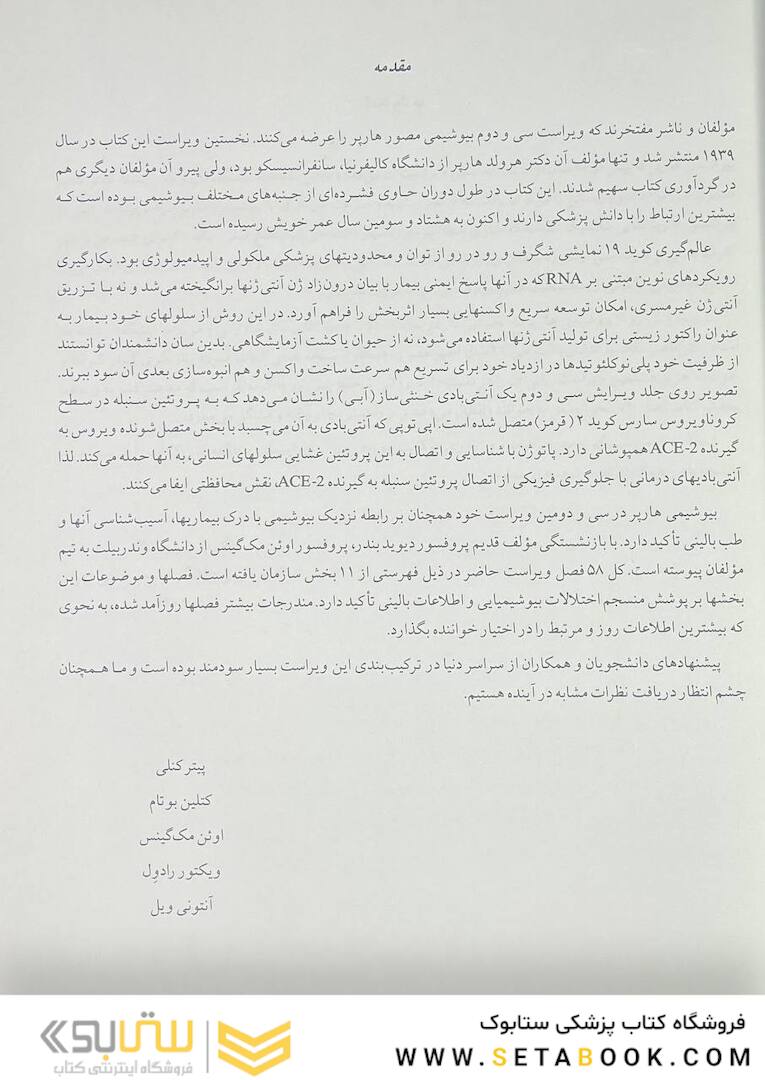 مقدمه
مؤلفان و ناشر مفتخرند که ویراست سی و دوم بیوشیمی مصور هارپر را عرضه می‌کنند. نخستین ویراست این کتاب در سال
۱۹۳۹ منتشر شد و تنها مؤلف آن دکتر هرولد هارپر از دانشگاه کالیفرنیا، سانفرانسیسکو بود، ولی پیرو آن مؤلفان دیگری هم
در گردآوری کتاب سهیم شدند. این کتاب در طول دوران حاوی فشرده‌ای از جنبه‌های مختلف بیوشیمی بوده است که
بیشترین ارتباط را با دانش پزشکی دارند و اکنون به هشتاد و سومین سال عمر خویش رسیده است.
عالم‌گیری کوید ۱۹ نمایشی شگرف و رو در رو از توان و محدودیتهای پزشکی ملکولی و اپیدمیولوژی بود. بکارگیری
رویکردهای نوین مبتنی بر RNA که در آنها پاسخ ایمنی بیمار با بیان درون‌زاد ژن آنتی‌ژنها برانگیخته می‌شد و نه با تزریق
آنتی‌ژن غیرمسری، امکان توسعه سریع واکسنهایی بسیار اثربخش را فراهم آورد. در این روش از سلولهای خود بیمار به
عنوان راکتور زیستی برای تولید آنتی‌ژنها استفاده می‌شود، نه از حیوان یا کشت آزمایشگاهی. بدین سان دانشمندان توانستند
از ظرفیت خود پلی‌نوکلئوتیدها در ازدیاد خود برای تسریع هم سرعت ساخت واکسن و هم انبوه‌سازی بعدی آن سود ببرند.
تصویر روی جلد ویرایش سی و دوم یک آنتی‌بادی خنثی‌ساز (آبی) را نشان می‌دهد که به پروتئین سنبله در سطح
کروناویروس سارس کوید ۲ (قرمز) متصل شده است. اپی توپی که آنتی‌بادی به آن می‌چسبد با بخش متصل‌شونده ویروس به
گیرنده ACE-2 همپوشانی دارد. پاتوژن با شناسایی و اتصال به این پروتئین غشایی سلولهای انسانی، به آنها حمله می‌کند. لذا
آنتی‌بادیهای درمانی با جلوگیری فیزیکی از اتصال پروتئین سنبله به گیرنده ACE-2، نقش محافظتی ایفا می‌کنند.
بیوشیمی هارپر در سی و دومین ویراست خود همچنان بر رابطه نزدیک بیوشیمی با درک بیماریها، آسیب‌شناسی آنها و
طب بالینی تأکید دارد. با بازنشستگی مؤلف قدیم پروفسور دیوید بندر، پروفسور اوئن مک‌گینس از دانشگاه وندربیلت به تیم
مؤلفان پیوسته است. کل ۵۸ فصل ویراست حاضر در ذیل فهرستی از ۱۱ بخش سازمان یافته است. فصلها و موضوعات این
بخشها بر پوشش منسجم اختلالات بیوشیمیایی و اطلاعات بالینی تأکید دارد. مندرجات بیشتر فصلها روزآمد شده، به نحوی
که بیشترین اطلاعات روز و مرتبط را در اختیار خواننده بگذارد.
پیشنهادهای دانشجویان و همکاران از سراسر دنیا در ترکیب‌بندی این ویراست بسیار سودمند بوده است و ما همچنان
چشم انتظار دریافت نظرات مشابه در آینده هستیم.
پیتر کنلی
کتلین بوتام
اوئن مک‌گینس
ویکتور رادول
آنتونی ویل
فروشگاه کتاب پزشکی ستابوک
WWW.SETABOOK.COM
ستابوک
فروشگاه اینترنتی کتاب